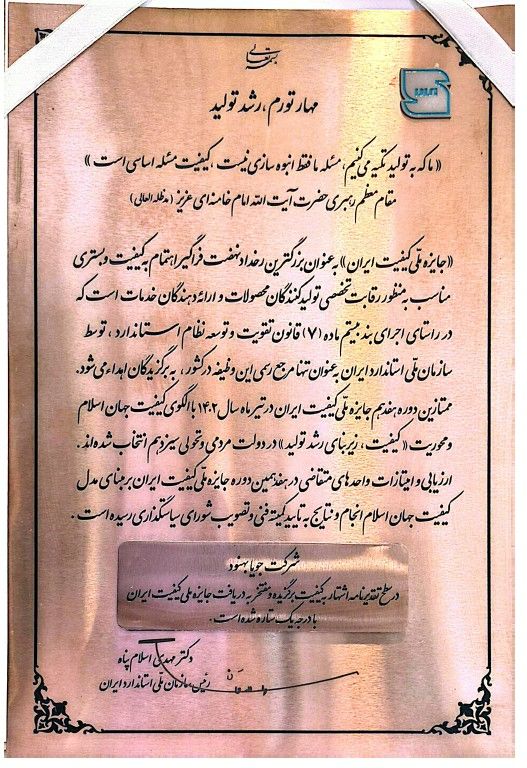 بسمه تعالی
مهار تورم، رشد تولید
«ما که به تولید تکیه می‌کنیم، مسئله ما فقط انبوه سازی نیست، کیفیت مسئله اساسی است»
مقام معظم رهبری حضرت آیت الله امام خامنه‌ای عزیز (مدظله العالی)
«جایزه ملّی کیفیت ایران» به عنوان بزرگترین رخداد نهضت فراگیر اهتمام به کیفیت و بستری
مناسب به منظور رقابت تخصصی تولیدکنندگان محصولات و ارائه دهندگان خدمات است که
در راستای اجرای بند بیستم ماده (۷) قانون تقویت و توسعه نظام استاندارد، توسط
سازمان ملّی استاندارد ایران به عنوان تنها مرجع رسمی این وظیفه در کشور، به برگزیدگان اهداء می‌شود.
ممتازین دوره هفدهم جایزه ملّی کیفیت ایران در تیر ماه سال ۱۴۰۲ با الگوی کیفیت جهان اسلام
و محوریت «کیفیت، زیربنای رشد تولید» در دولت مردمی و تحولی سیزدهم انتخاب شده‌اند.
ارزیابی و امتیازات واحدهای متقاضی در هفدهمین دوره جایزه ملّی کیفیت ایران بر مبنای مدل
کیفیت جهان اسلام انجام و نتایج به تایید کمیته فنی و تصویب شورای سیاستگذاری رسیده است.
شرکت جویا بهنود
در سطح تقدیرنامه اشتهار به کیفیت برگزیده و مفتخر به دریافت جایزه ملی کیفیت ایران
با درجه یک ستاره شده است.
دکتر مهدی اسلام پناه
رئیس سازمان ملّی استاندارد ایران